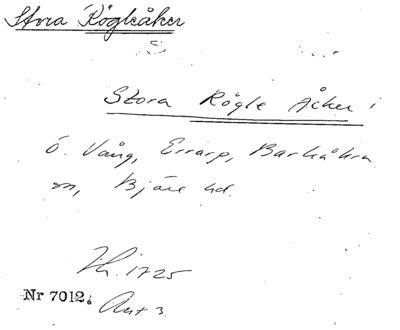 Stora Rögleåker
Stora Rögle Åker i
Ö. Vång, Errarp, Barkåkra
sn, Bjäre hd.
1725
Nr 7012. Akt 3.